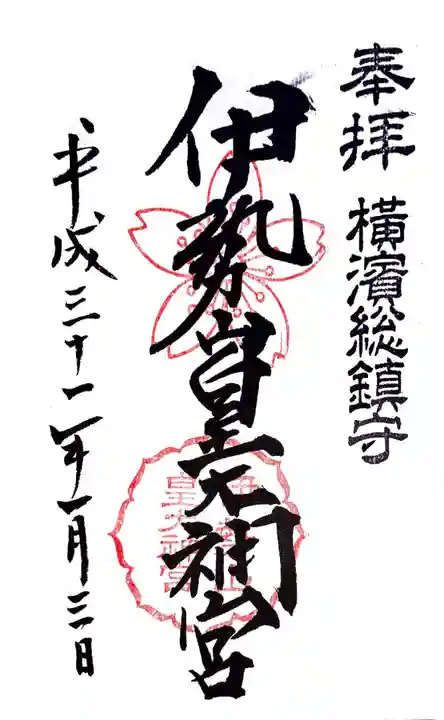 奉拝 横濱総鎮守
伊勢山皇大神宮
平成三十一年一月三日
伊勢山
皇大神宮